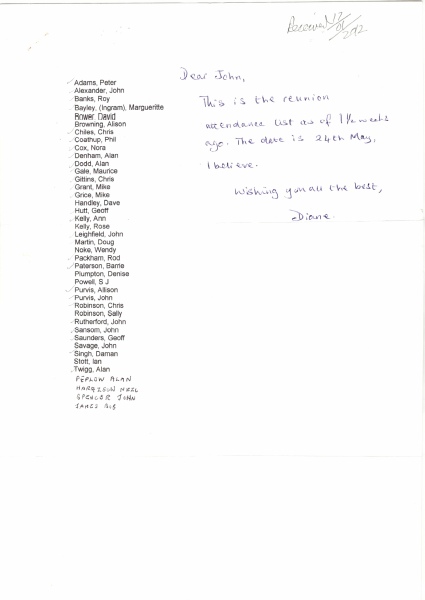 Received 17/
01/
2012
Dear John,
This is the reunion
attendance list as of 1½ weeks
ago. The date is 24th May,
I believe.
Wishing you all the best,
Diane
Adams, Peter
Alexander, John
Banks, Roy
Bayley, (Ingram), Margueritte
Rower David
Browning, Alison
Chiles, Chris
Coathup, Phil
Cox, Nora
Denham, Alan
Dodd, Alan
Gale, Maurice
Gittins, Chris
Grant, Mike
Grice, Mike
Handley, Dave
Hutt, Geoff
Kelly, Ann
Kelly, Rose
Leighfield, John
Martin, Doug
Noke, Wendy
Packham, Rod
Paterson, Barrie
Plumpton, Denise
Powell, S J
Purvis, Allison
Purvis, John
Robinson, Chris
Robinson, Sally
Rutherford, John
Sansom, John
Saunders, Geoff
Savage, John
Singh, Daman
Stott, Ian
Twigg, Alan
PEPLOW ALAN
HARRISON
SPENCER JOHN
JAMES BOB